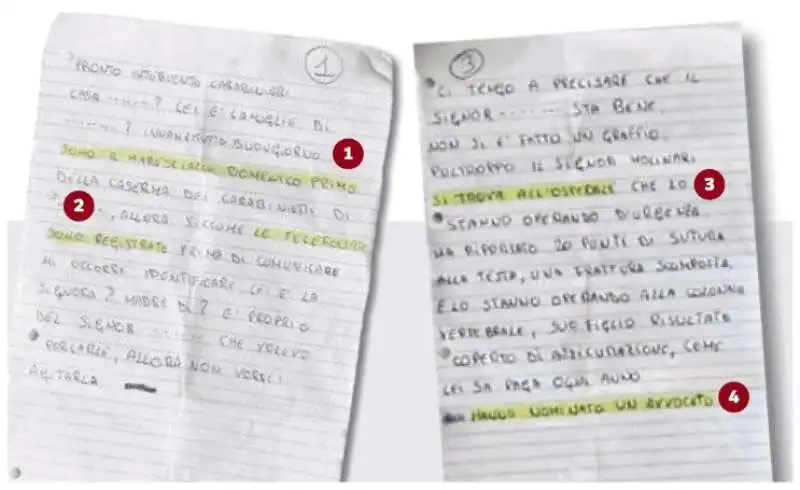 1
PRONTO INTERVENTO CARABINIERI
CASA ......? LEI E' LA MOGLIE DI
......? INNANZITUTTO BUONGIORNO
1
SONO IL MARESCIALLO DOMENICO PRIMO
DELLA CASERMA DEI CARABINIERI DI
2
, ALLORA SICCOME LE TELEFONATE
SONO REGISTRATE PRIMA DI COMUNICARE
MI OCCORRE IDENTIFICARE LEI E' LA
SIGNORA? MADRE DI? E' PROPRIO
DEL SIGNOR ...... CHE VOLEVO
PARLARLE, ALLORA NON VORREI
AGITARLA
3
CI TENGO A PRECISARE CHE IL
SIGNOR ....... STA BENE.
NON SI E' FATTO UN GRAFFIO.
PULTROPPO IL SIGNOR MOLINARI
SI TROVA ALL'OSPEDALE CHE LO
3
STANNO OPERANDO D'URGENZA
HA RIPORTATO 20 PUNTI DI SUTURA
ALLA TESTA, UNA FRATTURA SCOMPOSTA,
E LO STANNO OPERANDO ALLA COLONNA
VERTEBRALE, SUO FIGLIO RISULTATO
COPERTO DI ASSICURAZIONE, COME
LEI SA PAGA OGNI ANNO
HANNO NOMINATO UN AVVOCATO
4